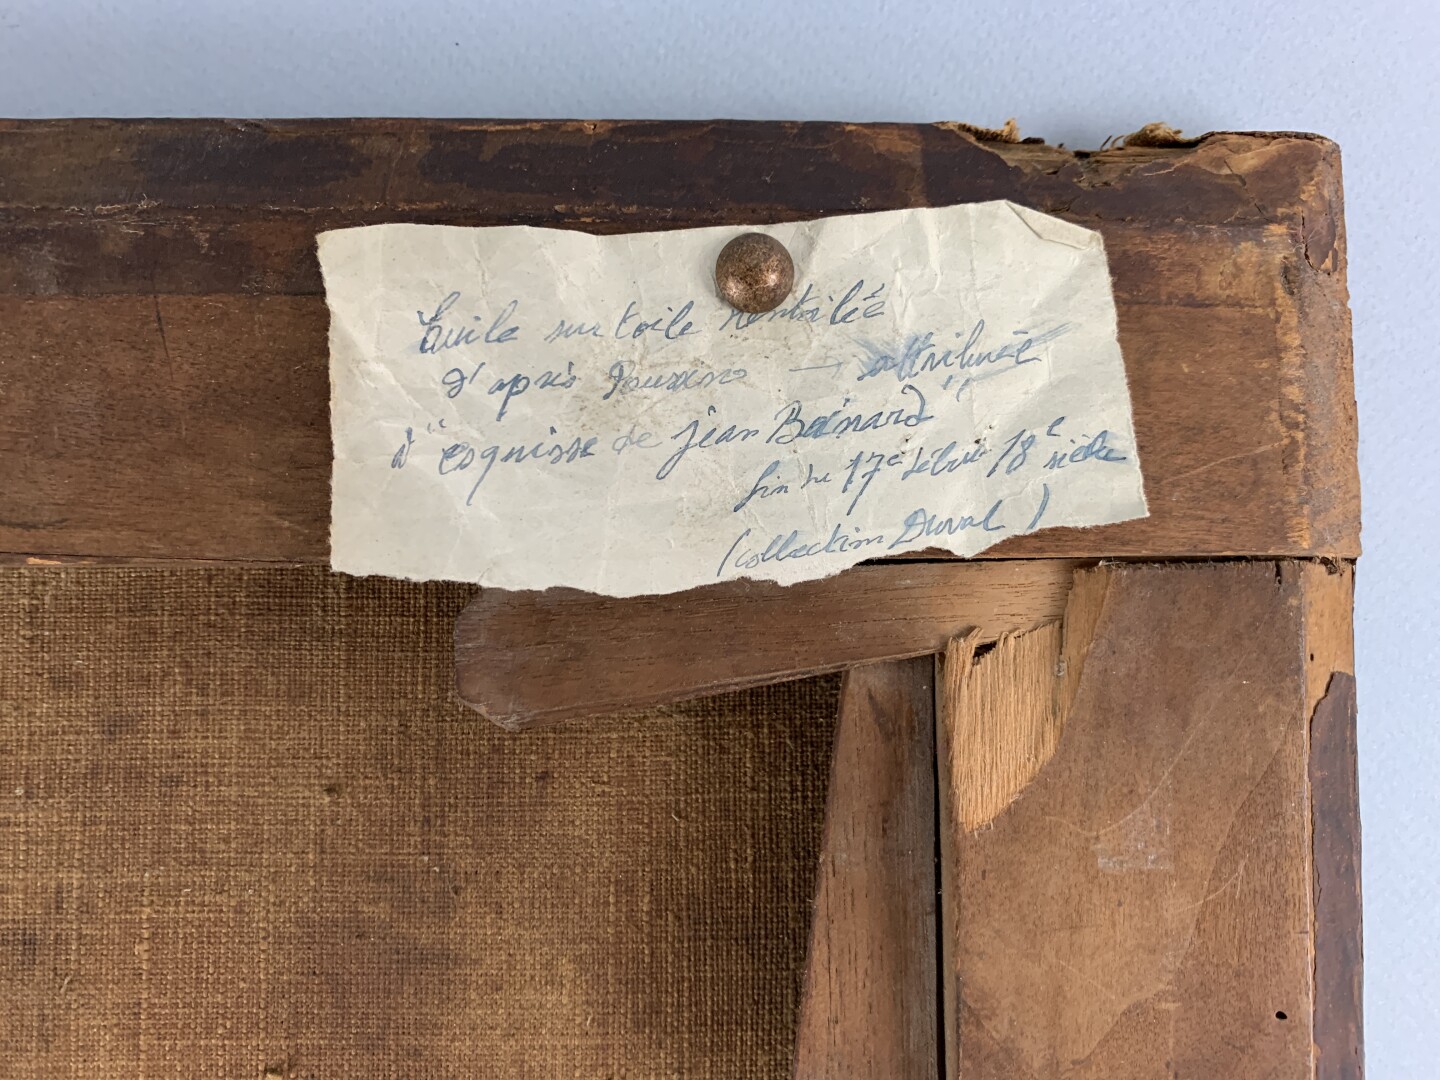 huile sur toile rentoilée
d'après Poussino — attribuée
à "esquisse de jean Bernard"
fin du 17e début 18e siècle
(collection Duval)